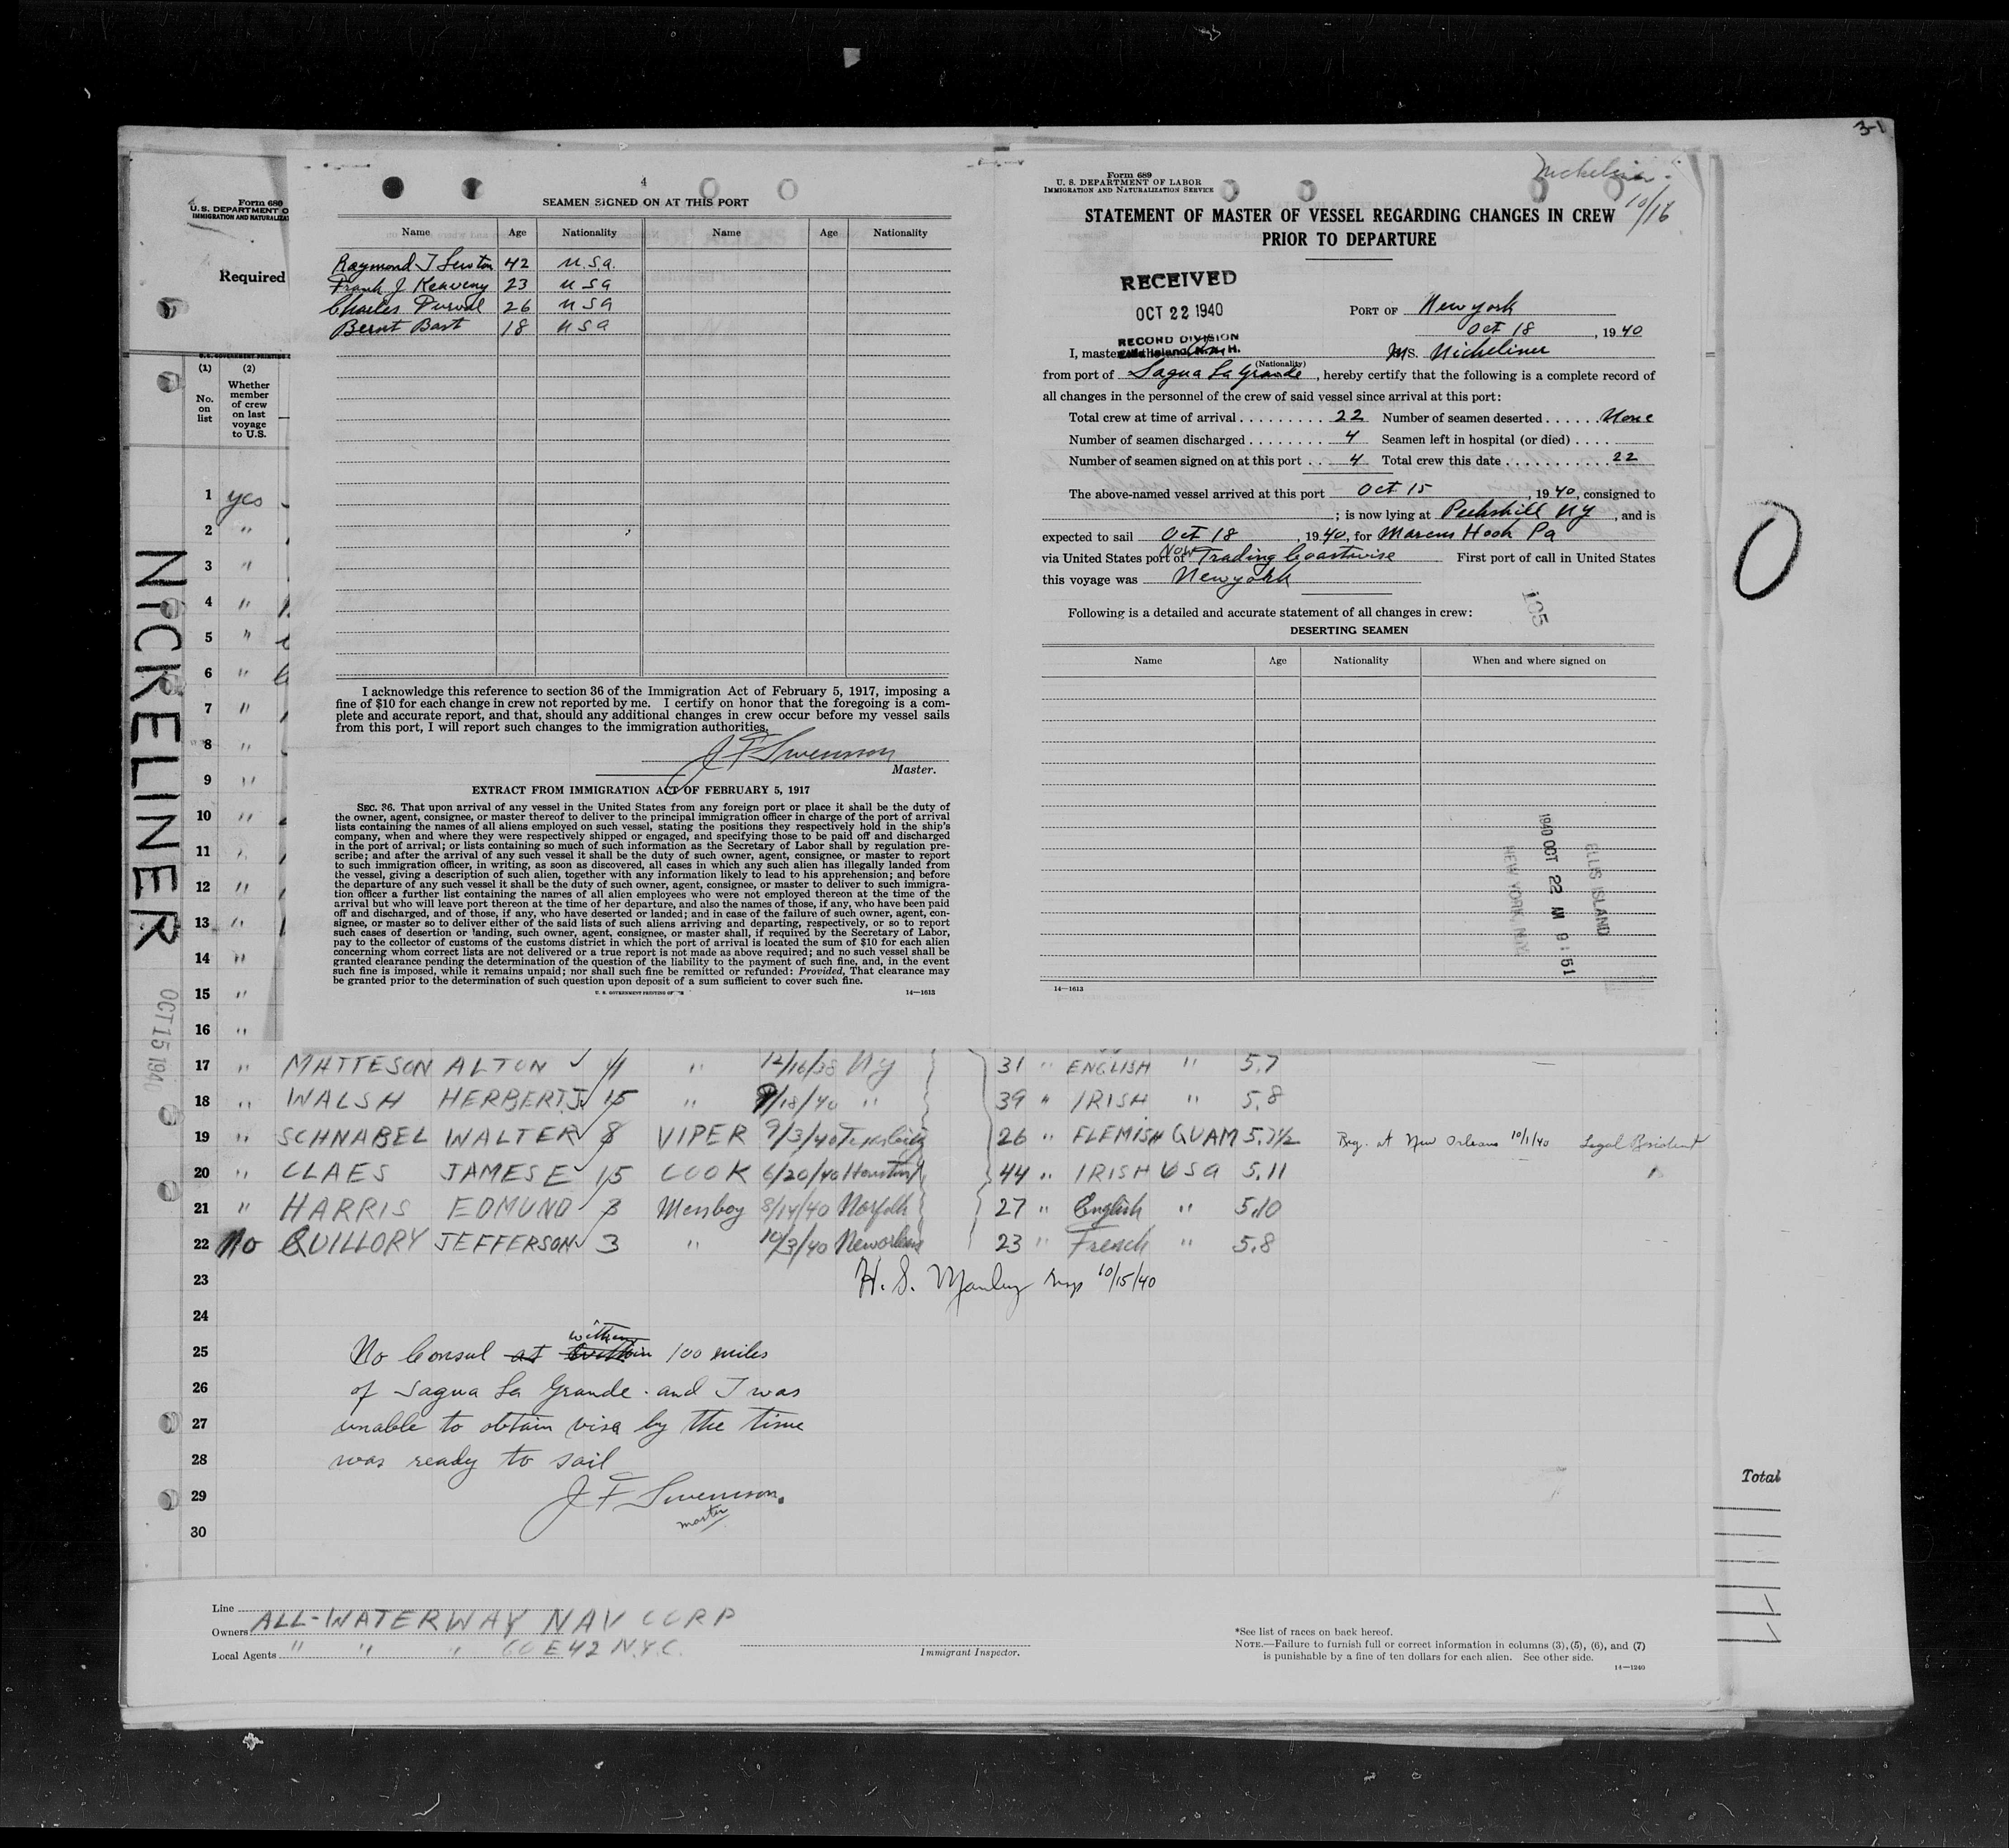 3-1
Form 680
U. S. DEPARTMENT O
IMMIGRATION AND NATURALIZAT
Required
(1)
No. on list
(2)
Whether member of crew on last voyage to U.S.
NICKELINER
OCT 15 1940
4
SEAMEN SIGNED ON AT THIS PORT
Name Age Nationality Name Age Nationality
Raymond J 42 U.S.A.
Frank J. Keaveny 23 U S A
Charles 26 U S A
Bernt Bast 18 U S A
I acknowledge this reference to section 36 of the Immigration Act of February 5, 1917, imposing a
fine of $10 for each change in crew not reported by me. I certify on honor that the foregoing is a com-
plete and accurate report, and that, should any additional changes in crew occur before my vessel sails
from this port, I will report such changes to the immigration authorities.
J F Swensson
Master.
EXTRACT FROM IMMIGRATION ACT OF FEBRUARY 5, 1917
SEC. 36. That upon arrival of any vessel in the United States from any foreign port or place it shall be the duty of
the owner, agent, consignee, or master thereof to deliver to the principal immigration officer in charge of the port of arrival
lists containing the names of all aliens employed on such vessel, stating the positions they respectively hold in the ship's
company, when and where they were respectively shipped or engaged, and specifying those to be paid off and discharged
in the port of arrival; or lists containing so much of such information as the Secretary of Labor shall by regulation pre-
scribe; and after the arrival of any such vessel it shall be the duty of such owner, agent, consignee, or master to report
to such immigration officer, in writing, as soon as discovered, all cases in which any such alien has illegally landed from
the vessel, giving a description of such alien, together with any information likely to lead to his apprehension; and before
the departure of any such vessel it shall be the duty of such owner, agent, consignee, or master to deliver to such immigra-
tion officer a further list containing the names of all alien employees who were not employed thereon at the time of the
arrival but who will leave port thereon at the time of her departure, and also the names of those, if any, who have been paid
off and discharged, and of those, if any, who have deserted or landed; and in case of the failure of such owner, agent, con-
signee, or master so to deliver either of the said lists of such aliens arriving and departing, respectively, or so to report
such cases of desertion or landing, such owner, agent, consignee, or master shall, if required by the Secretary of Labor,
pay to the collector of customs of the customs district in which the port of arrival is located the sum of $10 for each alien
concerning whom correct lists are not delivered or a true report is not made as above required; and no such vessel shall be
granted clearance pending the determination of the question of the liability to the payment of such fine, and, in the event
such fine is imposed, while it remains unpaid; nor shall such fine be remitted or refunded: Provided, That clearance may
be granted prior to the determination of such question upon deposit of a sum sufficient to cover such fine.
U. S. GOVERNMENT PRINTING OFFICE 14—1613
Form 689
U. S. DEPARTMENT OF LABOR
IMMIGRATION AND NATURALIZATION SERVICE
Nickeliner
10/16
STATEMENT OF MASTER OF VESSEL REGARDING CHANGES IN CREW
PRIOR TO DEPARTURE
RECEIVED
OCT 22 1940
RECORD DIVISION
Ellis Island, N. Y. H.
PORT OF New york
Oct 18, 1940
I, master MS. Nickeliner
(Nationality)
from port of Sagua La Grande, hereby certify that the following is a complete record of
all changes in the personnel of the crew of said vessel since arrival at this port:
Total crew at time of arrival 22 Number of seamen deserted None
Number of seamen discharged 4 Seamen left in hospital (or died)
Number of seamen signed on at this port 4 Total crew this date 22
The above-named vessel arrived at this port Oct 15, 1940, consigned to
; is now lying at Peekskill NY, and is
expected to sail Oct 18, 1940, for Marcus Hook Pa
via United States port of Now Trading Coastwise First port of call in United States
this voyage was New york
Following is a detailed and accurate statement of all changes in crew:
DESERTING SEAMEN
Name Age Nationality When and where signed on
195
1940 OCT 22 AM 9:51
ELLIS ISLAND
NEW YORK, N.Y.
14—1613
1 yes
2 "
3 "
4 "
5 "
6 "
7 "
8 "
9 "
10 "
11 "
12 "
13 "
14 "
15 "
16 "
17 " MATTESON ALTON 11 " 12/16/38 NY 31 " ENGLISH " 5.7
18 " WALSH HERBERT J 15 " 9/18/40 " 39 " IRISH " 5.8
19 " SCHNABEL WALTER 8 VIPER 9/3/40 26 " FLEMISH GUAM 5.7½ Reg. at New Orleans 10/1/40 Legal Resident
20 " CLAES JAMES E 15 COOK 6/20/40 Houston 44 " IRISH USA 5.11
21 " HARRIS EDMUND 3 Messboy 8/14/40 Norfolk 27 " English " 5.10
22 No QUILLORY JEFFERSON 3 " 10/3/40 New orleans 23 " French " 5.8
23 H. S. Manley Insp 10/15/40
24
25 No Consul at within within 100 miles
26 of Sagua La Grande. and I was
27 unable to obtain visa by the time
28 was ready to sail
29 J F Swensson.
master
30
Total
Line
Owners ALL-WATERWAY NAV CORP
Local Agents " " " 60 E 42 N.Y.C.
Immigrant Inspector.
*See list of races on back hereof.
NOTE.—Failure to furnish full or correct information in columns (3), (5), (6), and (7)
is punishable by a fine of ten dollars for each alien. See other side.
14—1240